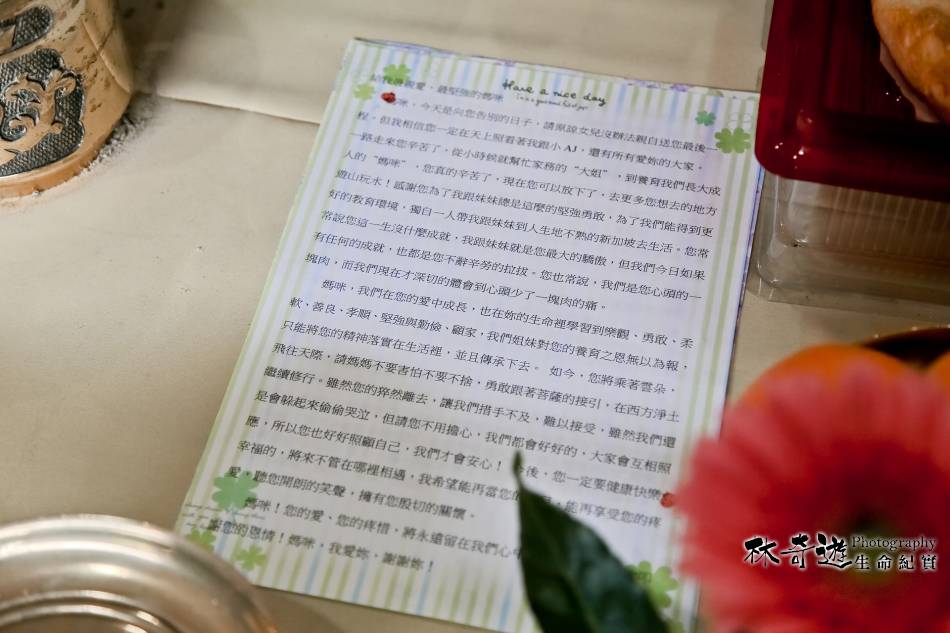 Have a nice day
親愛、最堅強的媽咪
媽咪，今天是向您告別的日子，請原諒女兒沒辦法親自送您最後一
程，但我相信您一定在天上照看著我跟小AJ，還有所有愛妳的大家。
一路走來您辛苦了，從小時候就幫忙家務的“大姐”，到養育我們長大成
人的“媽咪”，您真的辛苦了，現在您可以放下了，去更多您想去的地方
遊山玩水！感謝您為了我跟妹妹總是這麼的堅強勇敢，為了我們能得到更
好的教育環境，獨自一人帶我跟妹妹到人生地不熟的新加坡去生活。您常
常說您這一生沒什麼成就，我跟妹妹就是您最大的驕傲，但我們今日如果
有任何的成就，也都是您不辭辛勞的拉拔。您也常說，我們是您心頭的一
塊肉，而我們現在才深切的體會到心頭少了一塊肉的痛。
媽咪，我們在您的愛中成長，也在妳的生命裡學習到樂觀、勇敢、柔
軟、善良、孝順、堅強與勤儉、顧家，我們姐妹對您的養育之恩無以為報，
只能將您的精神落實在生活裡，並且傳承下去。 如今，您將乘著雲朵，
飛往天際，請媽媽不要害怕不要不捨，勇敢跟著菩薩的接引，在西方淨土
繼續修行。雖然您的猝然離去，讓我們措手不及，難以接受，雖然我們還
是會躲起來偷偷哭泣，但請您不用擔心，我們都會好好的，大家會互相照
應，所以您也好好照顧自己，我們才會安心！ 今後，您一定要健康快樂
幸福的，將來不管在哪裡相遇，我希望能再當您的 能再享受您的疼
愛，聽您開朗的笑聲，擁有您殷切的關懷。
媽咪！您的愛、您的疼惜，將永遠留在我們心中
謝您的恩情！媽咪，我愛妳，謝謝妳！
林奇遊 Photography
生命紀實